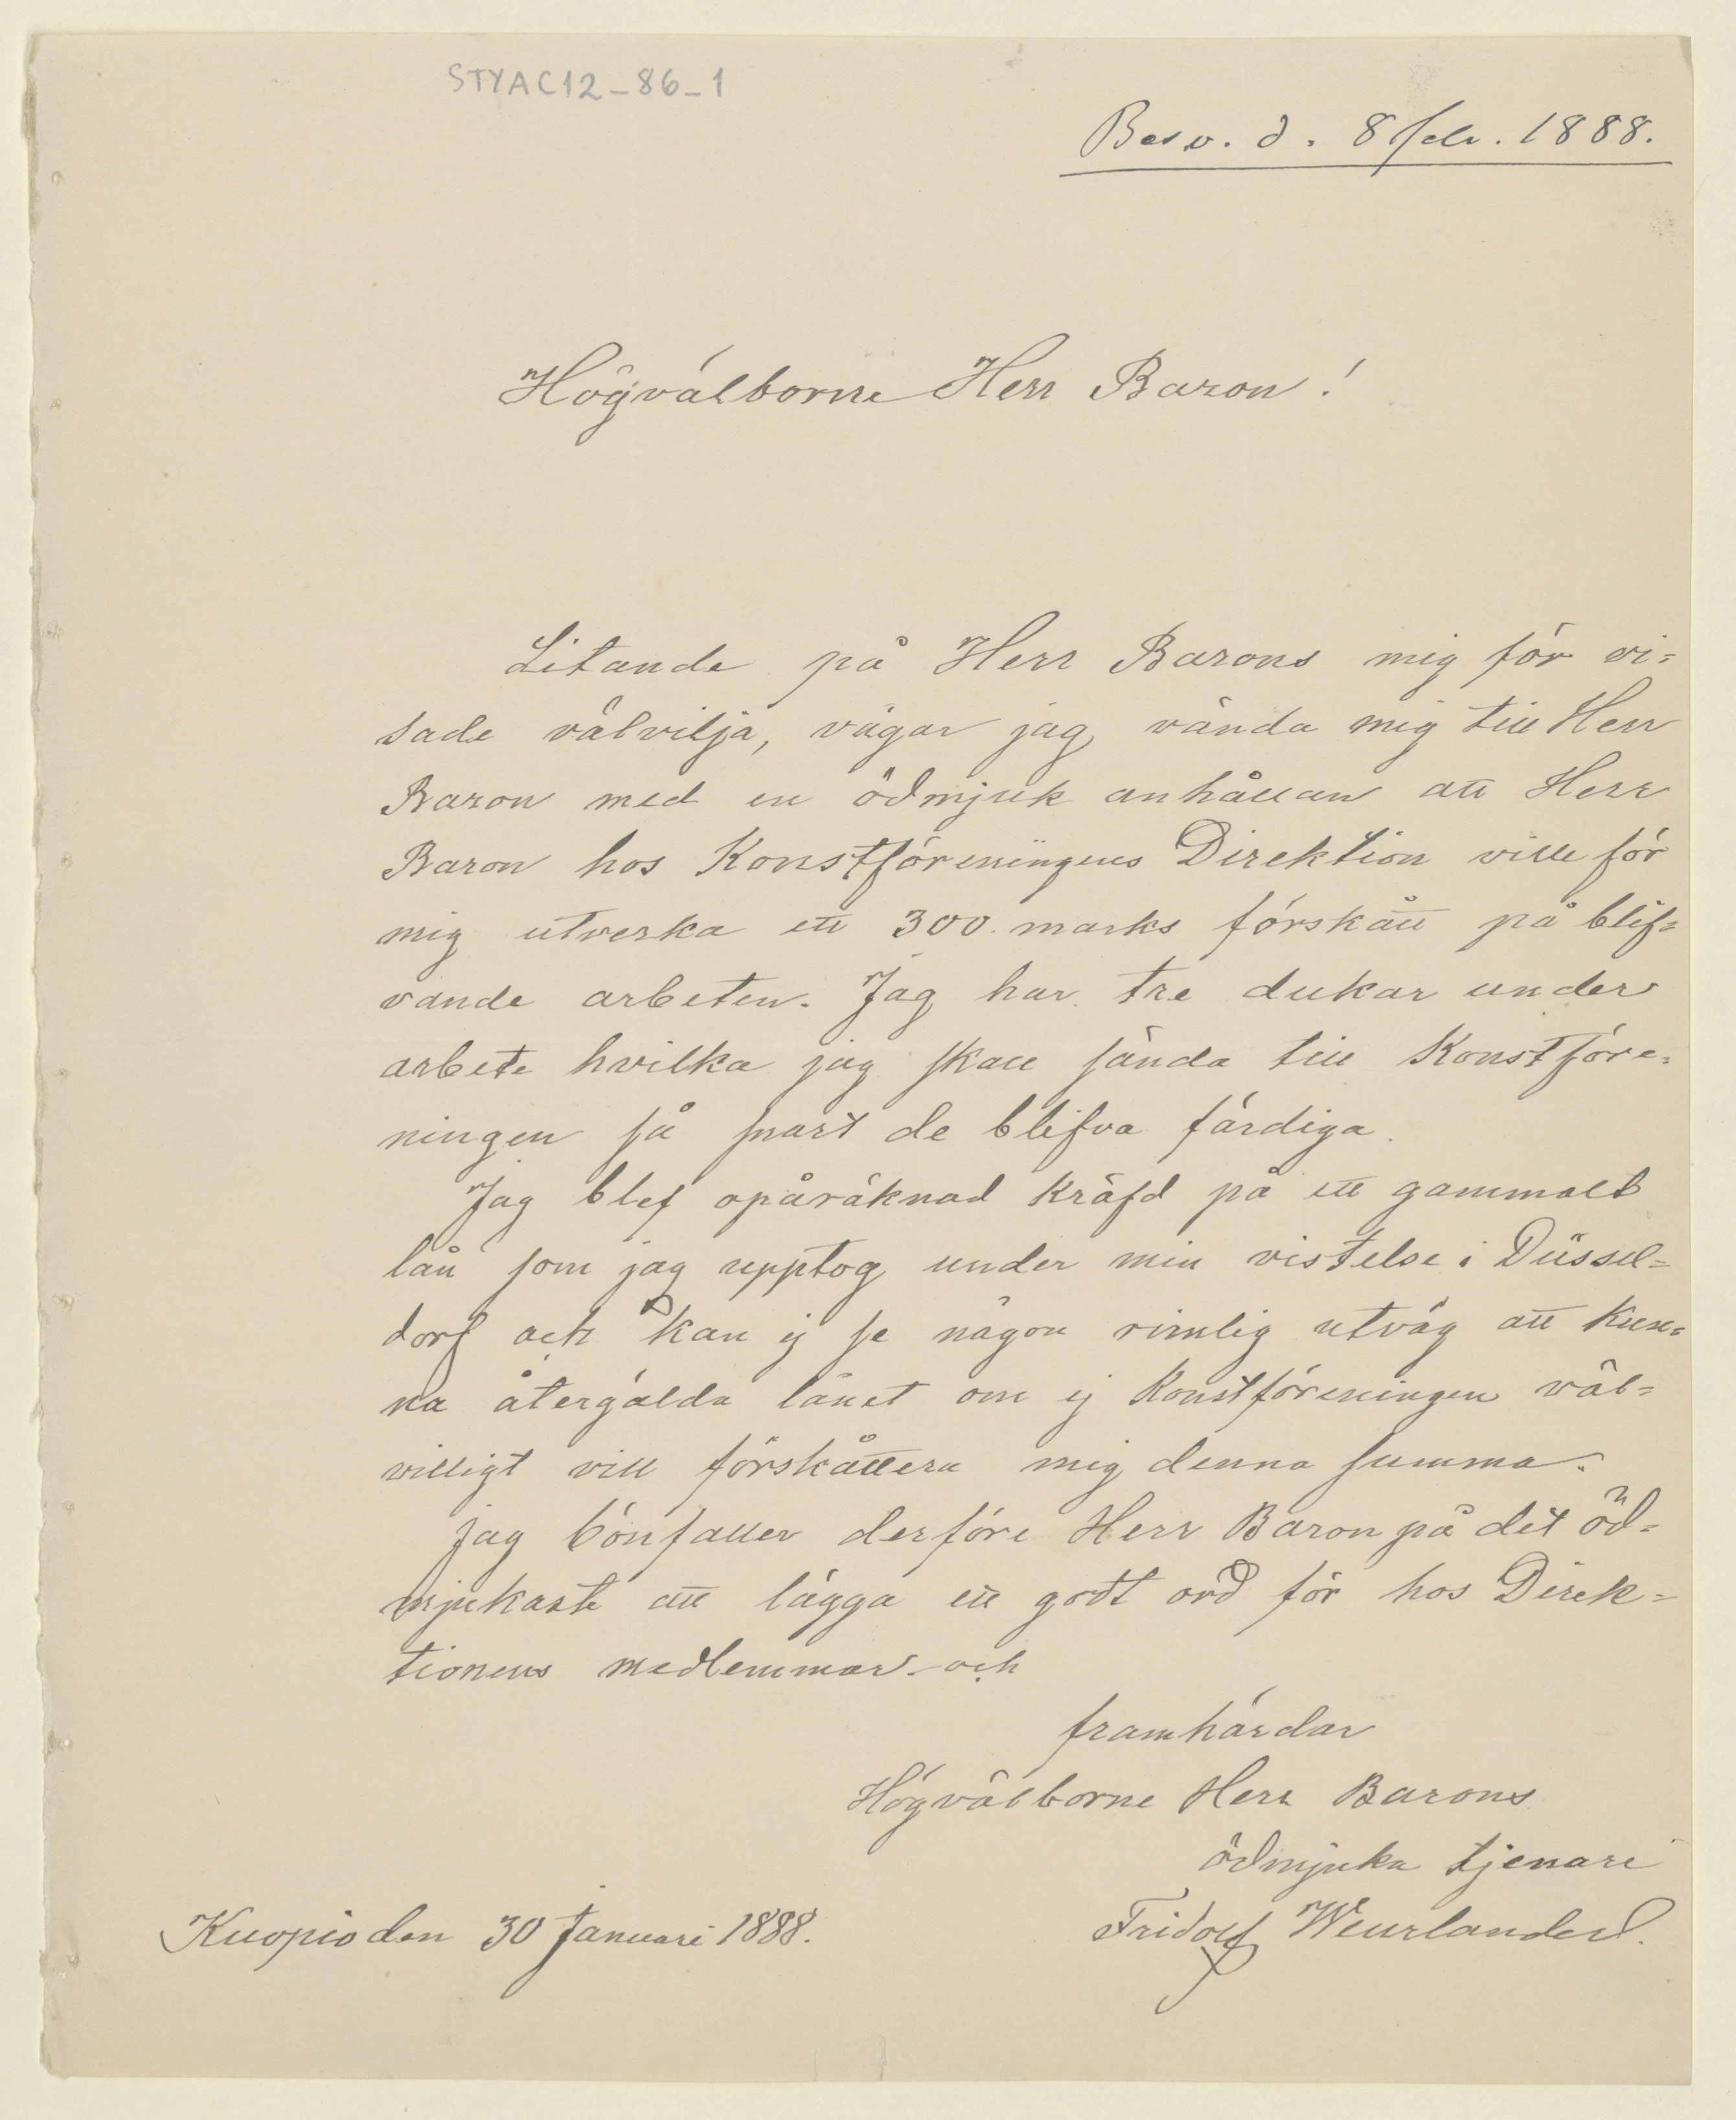 STYAC12-86-1
Besv. d. 8 febr. 1888.
Högvälborne Herr Baron!
Litande på Herr Barons mig för vi=
sade välvilja, vågar jag vända mig till Herr
Baron med en ödmjuk anhållan att Herr
Baron hos Konstföreningens Direktion ville för
mig utverka ett 300 marks förskått på blif=
vande arbeten. Jag har tre dukar under
arbete hvilka jag skall sända till Konstföre=
ningen så snart de blifva färdiga.
Jag blef opåräknad kräfd på ett gammalt
lån som jag upptog under min vistelse i Düssel=
dorf och kan ej se någon rimlig utväg att kun=
na återgälda lånet om ej Konstföreningen väl=
villigt vill förskåttera mig denna summa.
Jag bönfaller derföre Herr Baron på det öd=
mjukaste att lägga ett godt ord för hos Direk=
tionens medlemmar och
framhärdar
Högvälborne Herr Barons
ödmjuka tjenare
Kuopio den 30 Januari 1888.
Fridolf Weurlander.